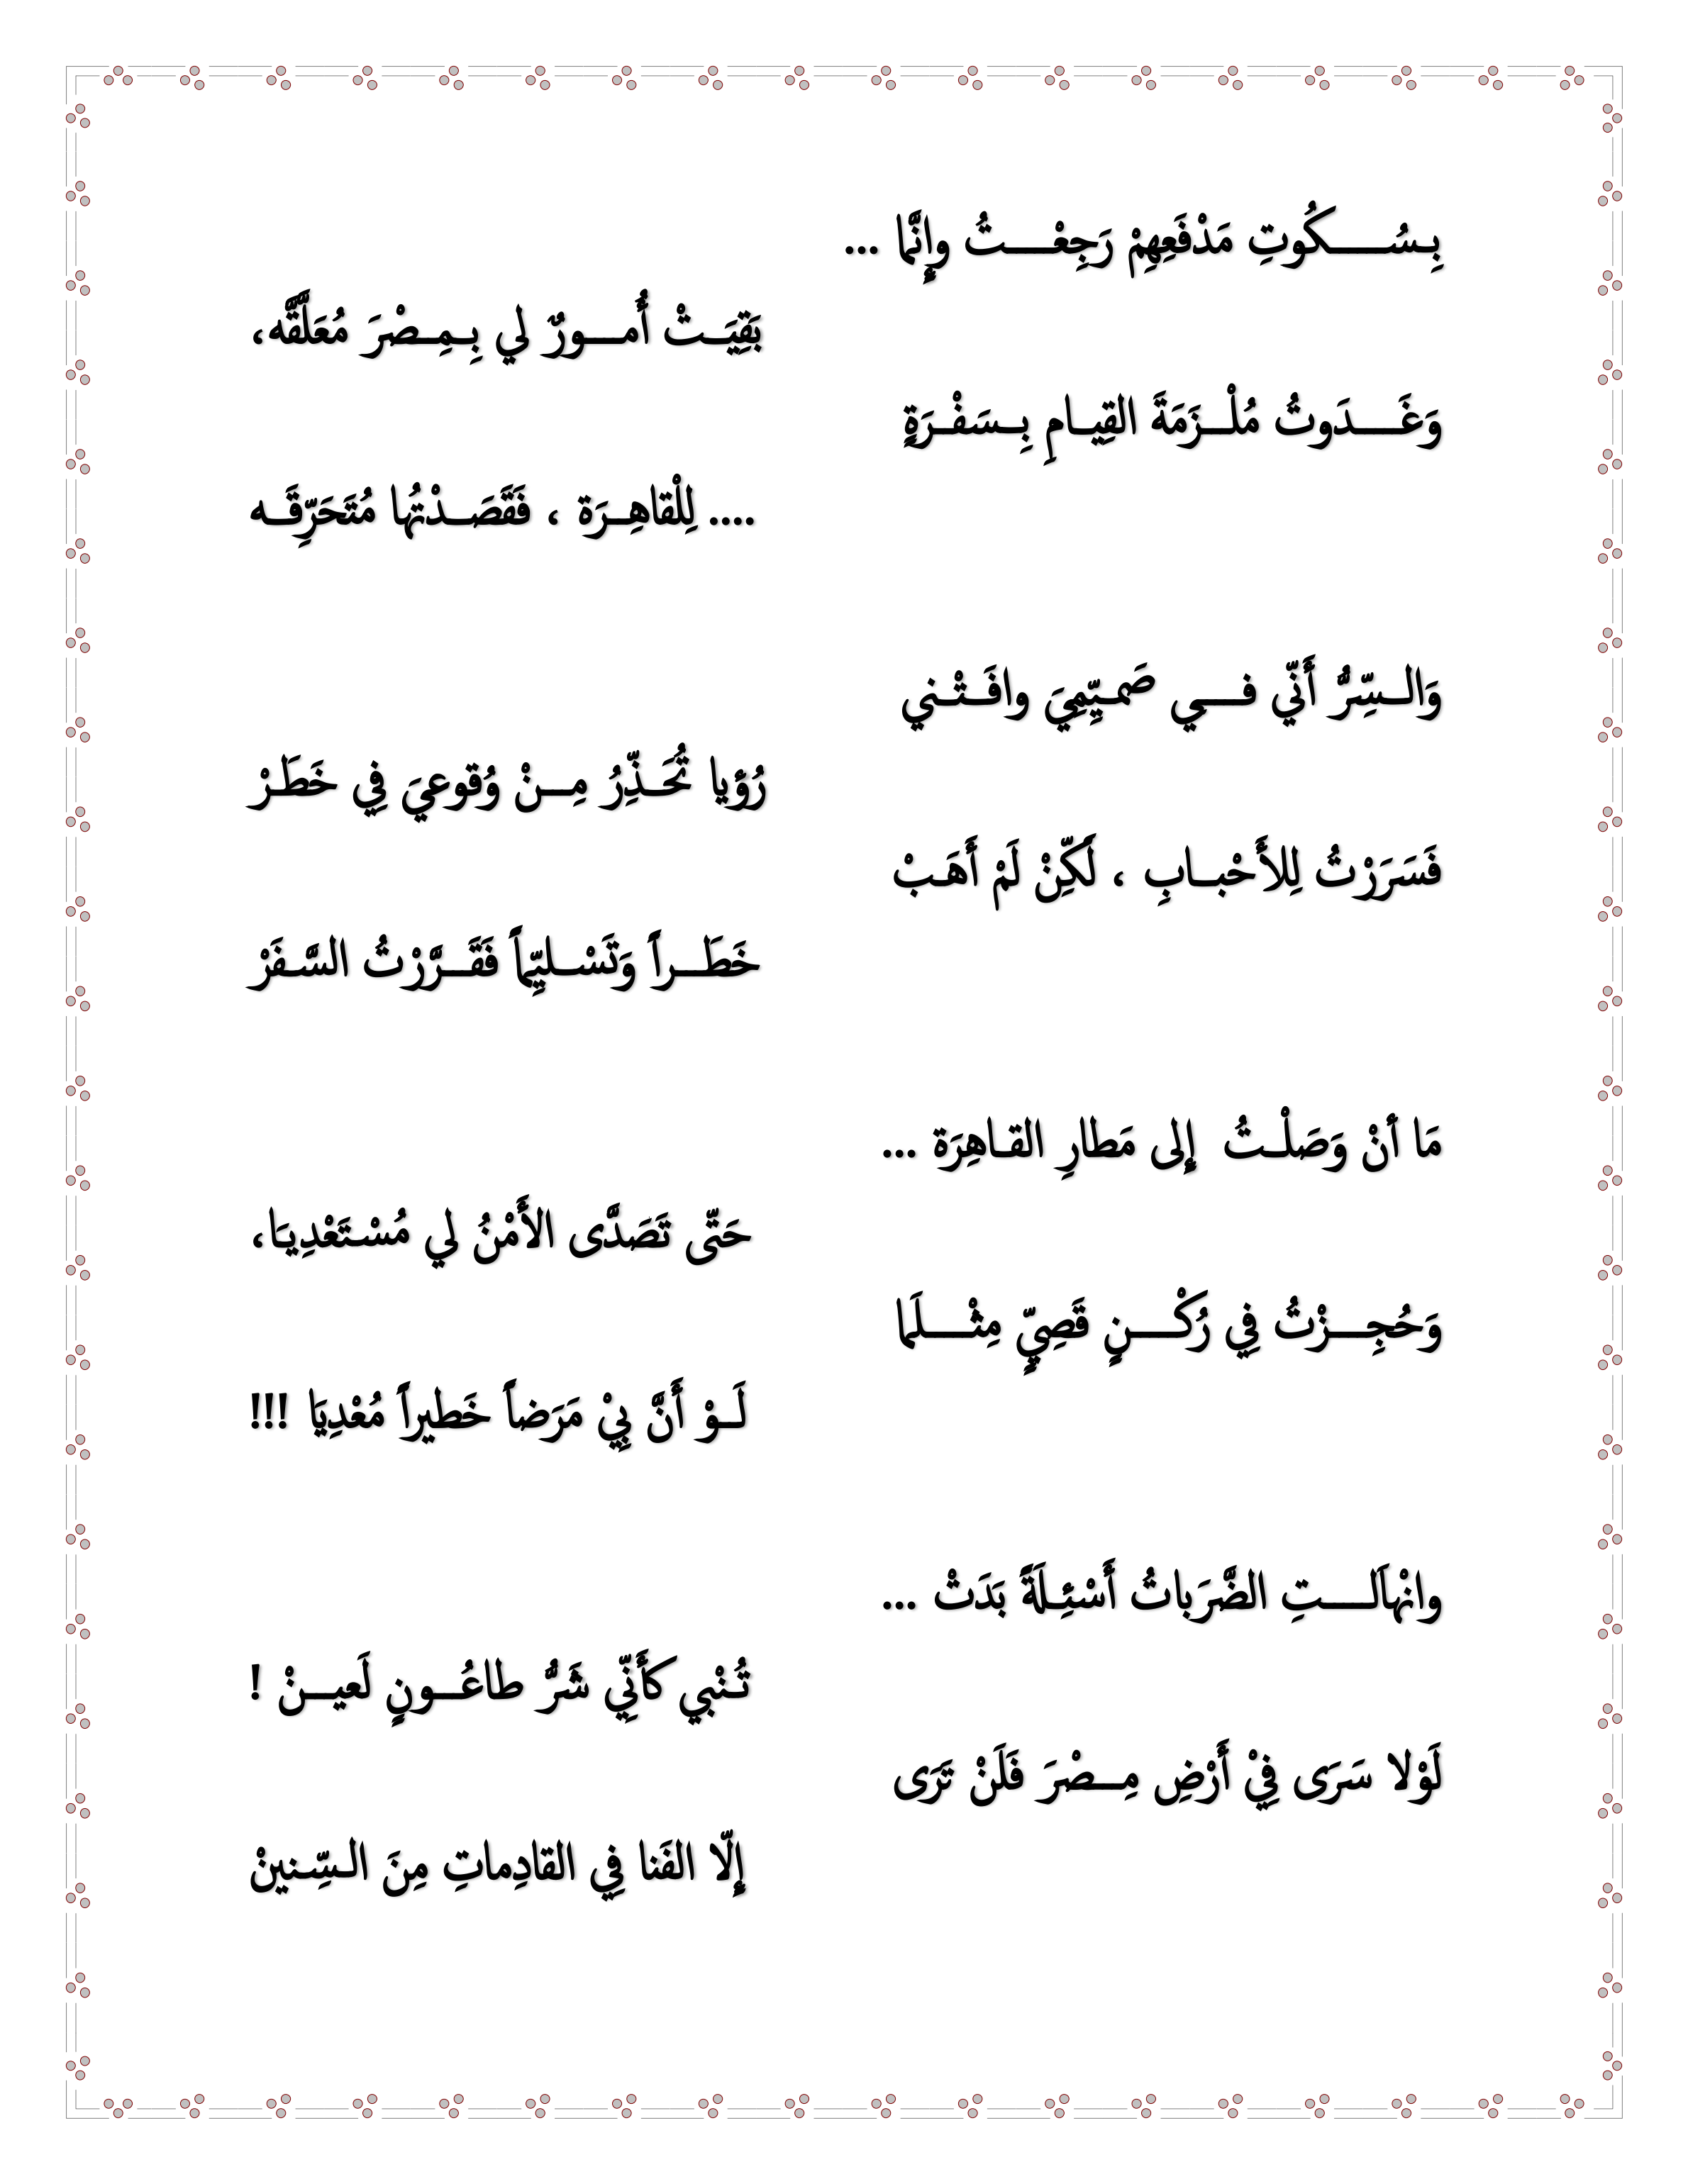 بِسُكُوتِ مَدْفَعِهِمْ رَجِعْتُ وإِنَّما ...
بَقِيَتْ أُمورٌ لي بِمِصْرَ مُعَلَّقَّه،
وَغَدَوتُ مُلْزَمَةَ القِيامِ بِسَفْرَةٍ
.... لِلْقاهِرَة ، فَقَصَدْتُها مُتَحَرِّقَه
وَالسِّرُّ أَنّي في صَميِّمِيَ وافَتْني
رُؤيا تُحَذِّرُ مِنْ وُقوعيَ فِي خَطَرْ
فَسَرَرْتُ لِلأَحْبابِ ، لَكِّنْ لَمْ أَهَبْ
خَطَراً وَتَسْليِّماً فَقَرَّرْتُ السَّفَرْ
مَا أنْ وَصَلْتُ إِلى مَطارِ القاهِرَة ...
حَتّى تَصَدَّى الأَمْنُ لي مُسْتَعْدِيَا،
وَحُجِزْتُ فِي رُكْنٍ قَصِيٍّ مِثْلَما
لَوْ أَنَّ بِيْ مَرَضاً خَطيراً مُعْدِيَا !!!
وانْهاَلتِ الضَّرَباتُ أَسْئِلَةً بَدَتْ ...
تُنْبي كأَنِّي شَرُّ طاعُونٍ لَعينْ !
لَوْلا سَرَى فِيْ أَرْضِ مِصْرَ فَلَنْ تَرَى
إِلّا الفَنا فِي القادِماتِ مِنَ السِّنينْ